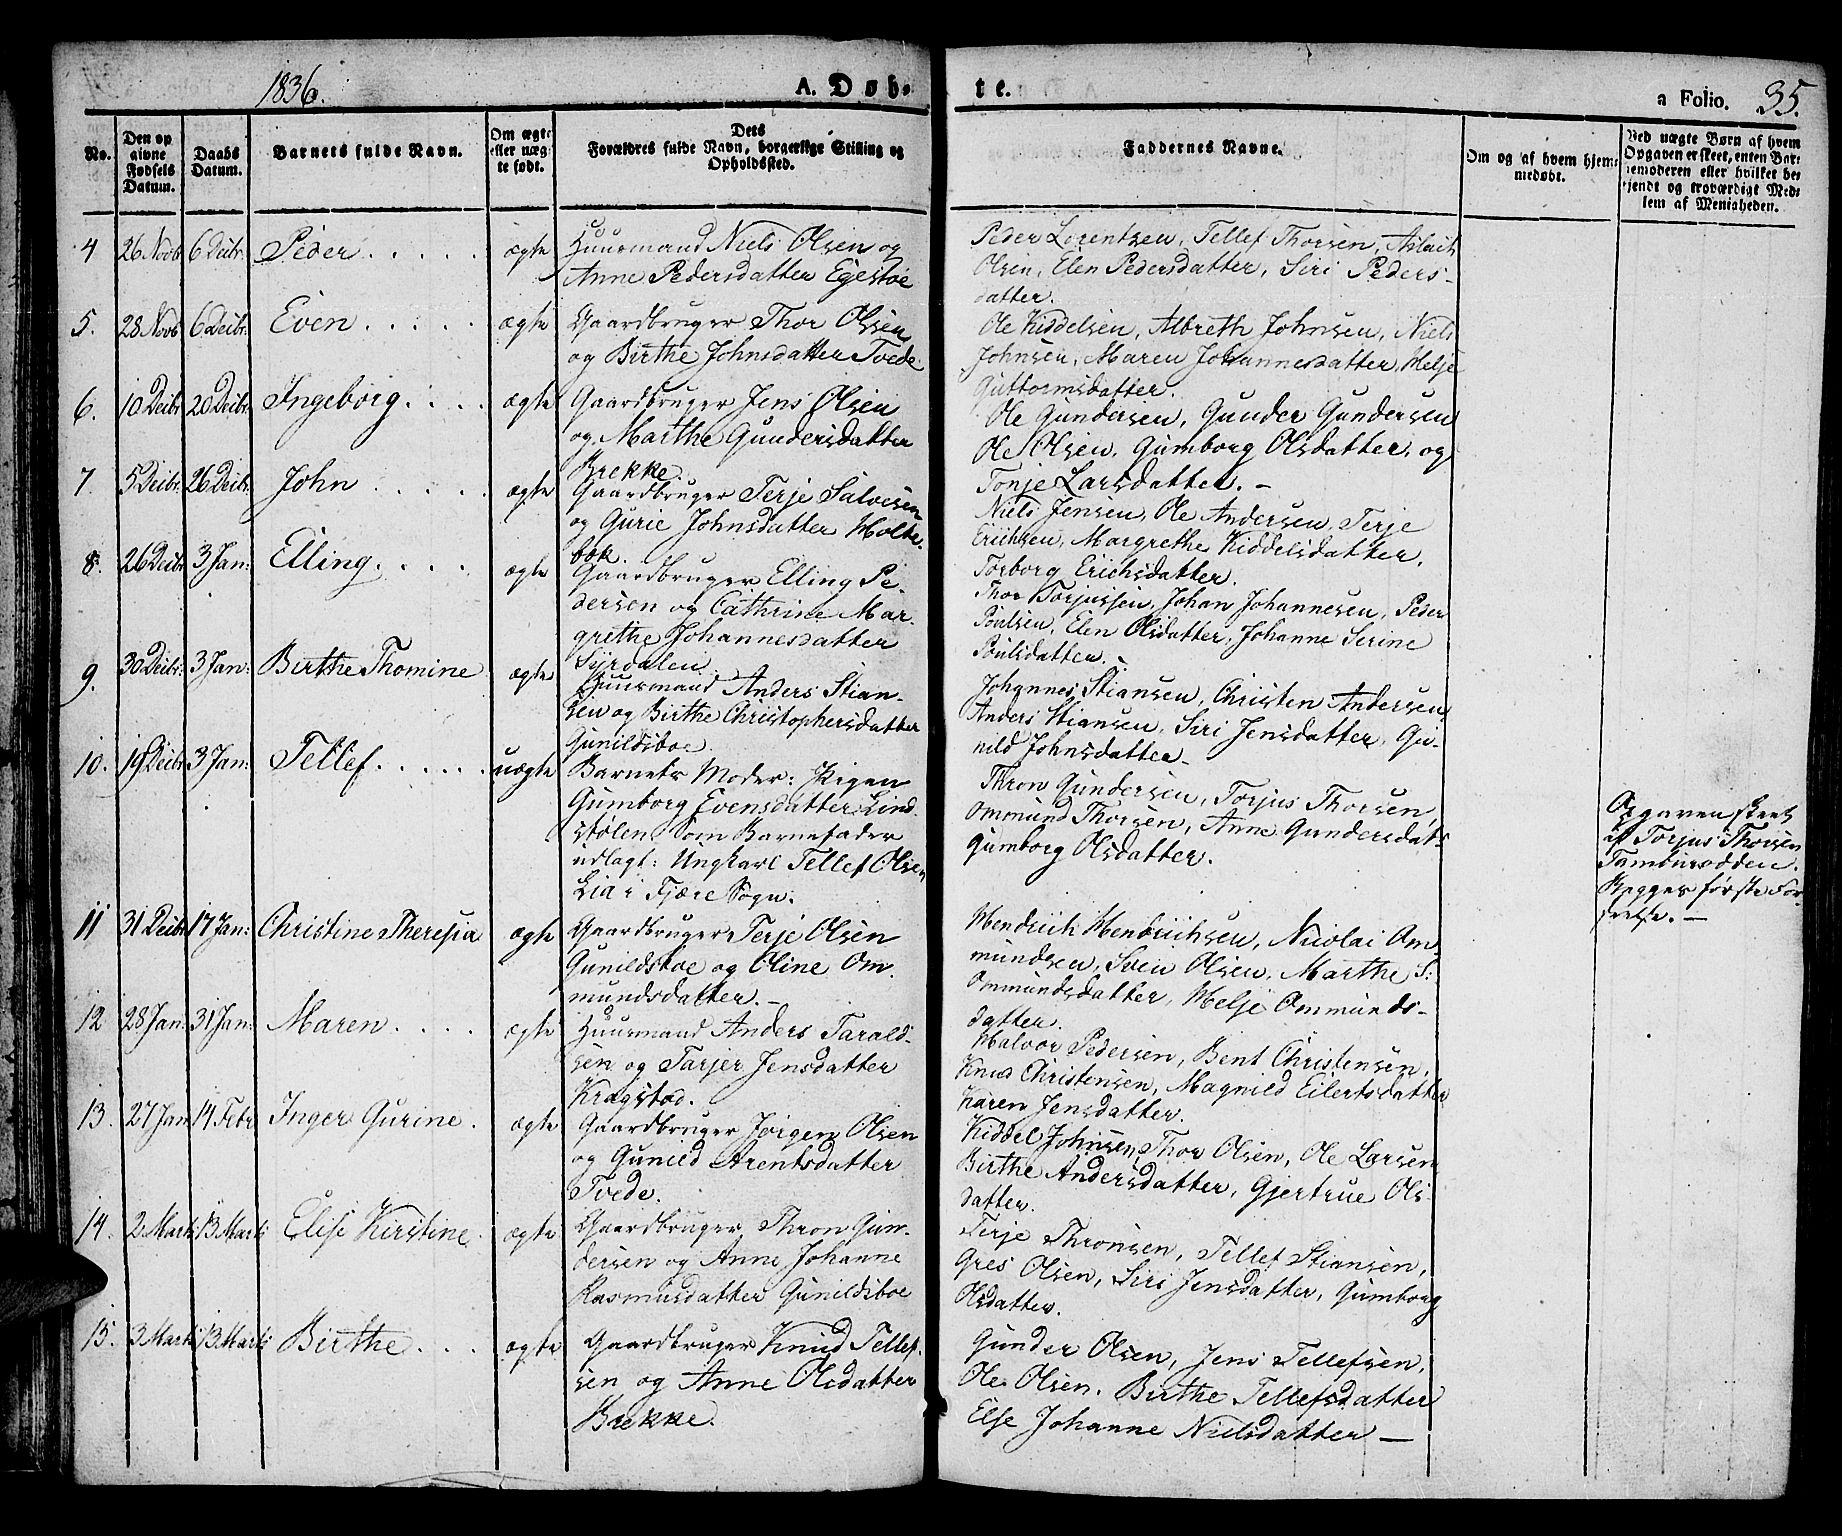 1836.
A. Døb-
te.
a Folio. 35.
No.
Den op
givne
Fødsels
Datum.
Daabs
Datum.
Barnets fulde Navn.
Om ægte
eller uæg-
te født.
Dets
Forældres fulde Navn, borgerlige Stilling og
Opholdssted.
Faddernes Navne.
Om og af hvem hjem-
medøbt.
Ved uægte Børn af hvem
Opgaven er skeet, enten Bar-
nemoderen eller hvilket be-
kjendt og troværdigt Med-
lem af Menigheden.
4 26 Novb 6 Decbr. Peder . . . . . ægte Huusmand Niels Olsen og
Anne Pedersdatter Egestøe
Peder Lorentsen, Tellef Thorsen, Aslach
Olsen, Elen Pedersdatter, Siri Peders-
datter.
5. 28 Novb 6 Decbr. Even . . . . . ægte Gaardbruger Thor Olsen
og Birthe Johnsdatter Tvede.
Ole Kiddelsen, Albreth Johnsen, Niels
Johnsen, Maren Johannesdatter, Helje
Guttormsdatter.
6. 10 Decbr 20 Decbr. Ingeborg. . . . ægte Gaardbruger Jens Olsen
og Marthe Gundersdatter
Brekke.
Ole Gundersen, Gunder Gundersen
Ole Olsen, Gumborg Olsdatter, og
Tonje Larsdatter. —
7. 5 Decbr. 26 Decbr. John . . . . . ægte Gaardbruger Terje Salvesen
og Gurie Johnsdatter Holte-
bæk.
Niels Jensen, Ole Andersen, Terje
Erichsen, Margrethe Kiddelsdatter,
Torborg Erichsdatter.
8. 26 Decbr 3 Jan: Elling. . . . . ægte Gaardbruger Elling Pe-
dersen og Cathrine Mar-
grethe Johannesdatter
Syrdalen.
Thor Torjussen, Johan Johannesen, Peder
Poulsen, Elen Olsdatter, Johanne Serine
Poulsdatter.
9. 30 Decbr. 3 Jan: Birthe Thomine ægte Huusmand Anders Stian-
sen og Birthe Christophersdatter
Gunildsboe.
Johannes Stiansen, Christen Andersen,
Anders Stiansen, Siri Jensdatter, Gu-
nild Johnsdatter —
10. 19 Decbr 3 Jan: Tellef. . . . . . uægte Barnets Moder: Pigen
Gumborg Evensdatter Lind-
stølen. Som Barnefader
udlagt: Ungkarl Tellef Olsen
Lia i Fjære Sogn.
Thron Gundersen, Torjus Thorsen,
Ommund Thorsen, Anne Gundersdat-
Gumborg Olsdatter.
Opgaven skeet
af Torjus Thorsen
Tamburodden.
Begges første For-
seelse. —
11 31 Decbr 17 Jan: Christine Theresia ægte Gaardbruger Terje Olsen
Gunildsboe og Oline Om-
mundsdatter. —
Hendrich Hendrichsen, Nicolai Om
mundsen, Sven Olsen, Marthe S:
Ommundsdatter, Helje Ommunds-
datter.
12 28 Jan: 31 Jan: Maren . . . . ægte Huusmand Anders Tarald-
sen og Tarjer Jensdatter
Kragstad.
Halvor Pedersen, Bent Christensen,
Knud Christensen, Magnild Eilertsdatter
Karen Jensdatter.
13. 27 Jan 14 Febr Inger Gurine . ægte Gaardbruger Jørgen Olsen
og Gunild Arentsdatter
Tvede.
Kiddel Johnsen, Thor Olsen, Ole Larsen
Birthe Andersdatter, Gjertrue Ols-
datter.
14. 2 Marti 13 Marti Elise Kirstine . ægte Gaardbruger Thron Gun-
dersen og Anne Johanne
Rasmusdatter Gunildsboe
Terje Thronsen, Tellef Stiansen,
Gres Olsen, Siri Jensdatter, Gumborg
Olsdatter.
15. 3 Marti 13 Marti Birthe . . . ægte Gaardbruger Knud Tellef-
sen og Anne Olsdatter
Brekke.
Gunder Olsen, Jens Tellefsen,
Ole Olsen. Birthe Tellefsdatter
Else Johanne Nielsdatter —